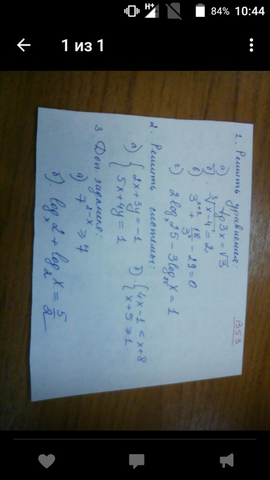 H+ 84% 10:44
1 из 1
1. Решить уравнения:
а) tg3x=√3
б) ∛x-4 = 2
в) 3ˣ⁺² + 18/3ˣ - 29=0
г) 2 log 25 - 3 log x = 1
2. Решить системы:
а) { 2x+3y=-1
5x+4y=1
2) { 4x-1 < x+8
x+5 ≥ 1
3. Доп. задания:
а) 7²⁻ˣ ≥ 7
б) logₓ2 + log₂x = 5/2